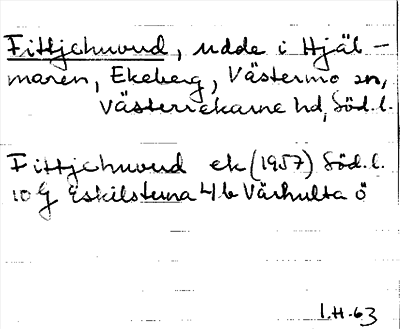 Fittjehuvud, udde i Hjäl-
maren, Ekeberg, Västermo sn,
Västerrekarne hd, Söd. l.
Fittjehuvud ek (1957) Söd. l.
10 G Eskilstuna 4 b Värhulta ö
I.H. 63